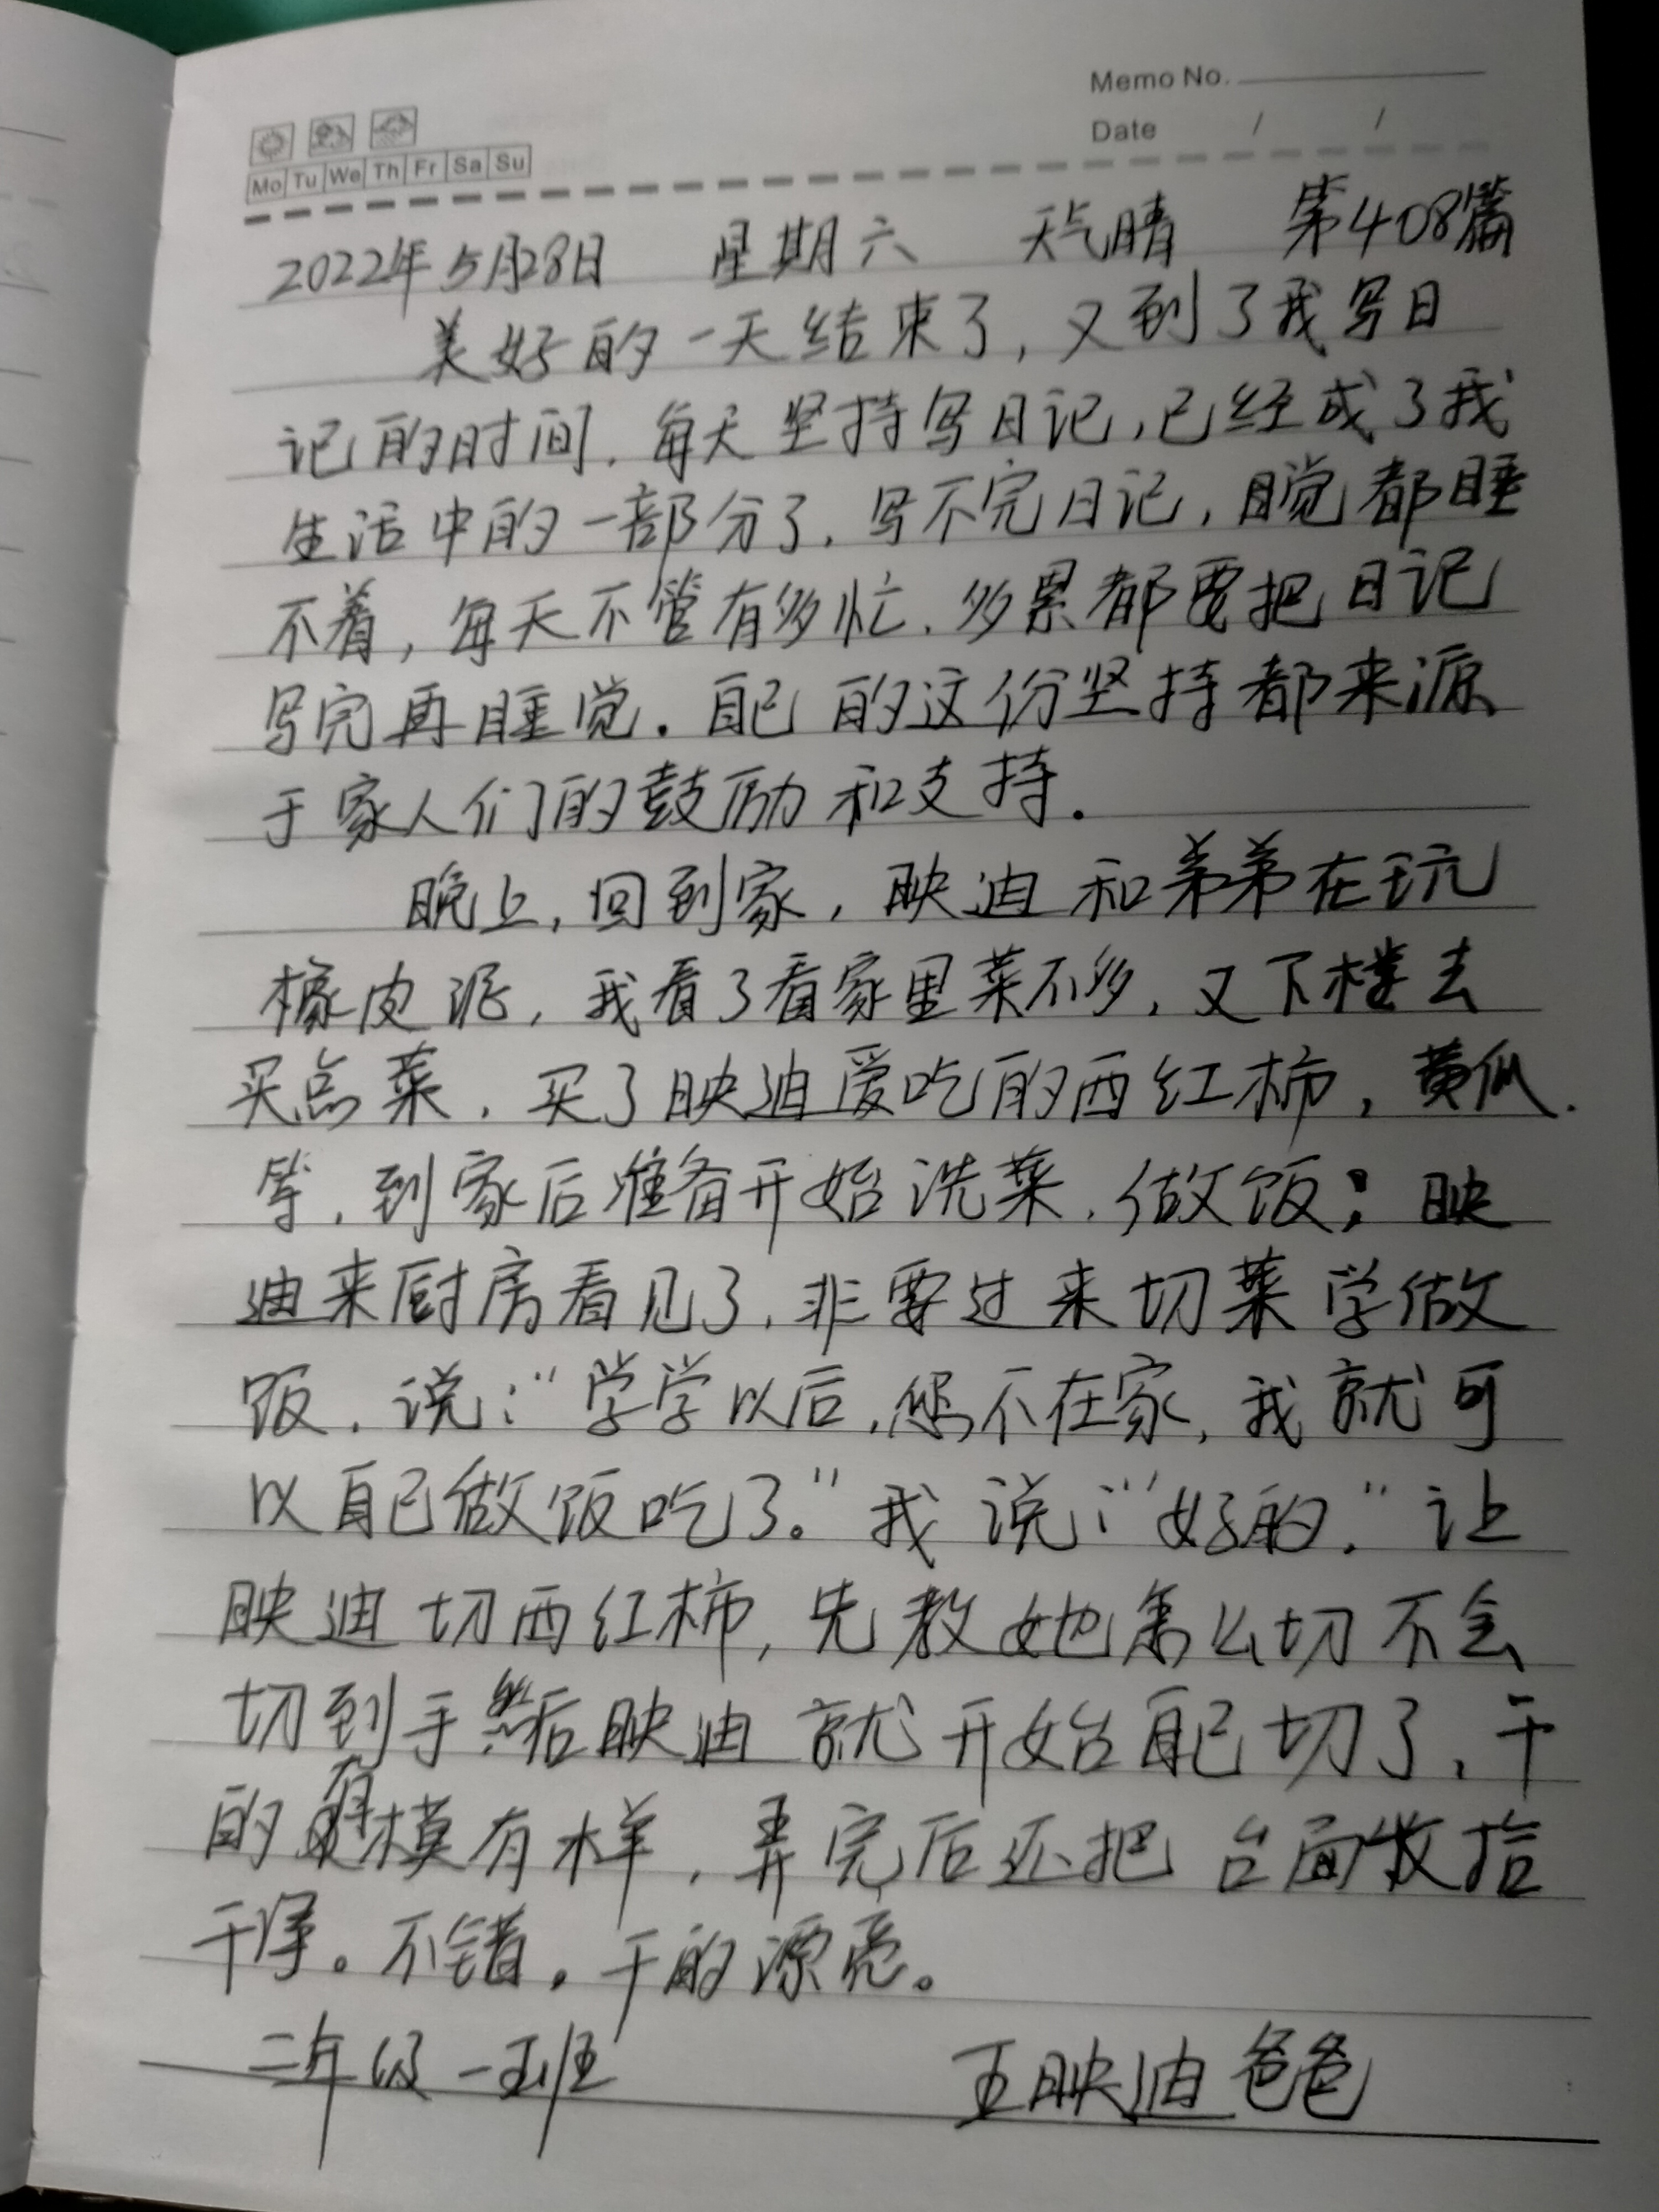 Memo No.
Date / /
Mo Tu We Th Fr Sa Su
2022年5月28日 星期六 天气晴 第408篇
美好的一天结束了,又到了我写日
记的时间.每天坚持写日记,已经成了我
生活中的一部分了.写不完日记,觉都睡
不着,每天不管有多忙.多累都要把日记
写完再睡觉.自己的这份坚持都来源
于家人们的鼓励和支持.
晚上,回到家,映迪和弟弟在玩
橡皮泥,我看了看家里菜不多,又下楼去
买点菜.买了映迪爱吃的西红柿,黄瓜.
等.到家后准备开始洗菜.做饭;映
迪来厨房看见了.非要过来切菜学做
饭.说:“学学以后,您不在家,我就可
以自己做饭吃了。”我说:“好的.”让
映迪切西红柿,先教她怎么切不会
切到手然后映迪就开始自己切了.干
的有模有样,弄完后还把台面收拾
干净。不错.干的漂亮。
二年级一班 王映迪爸爸